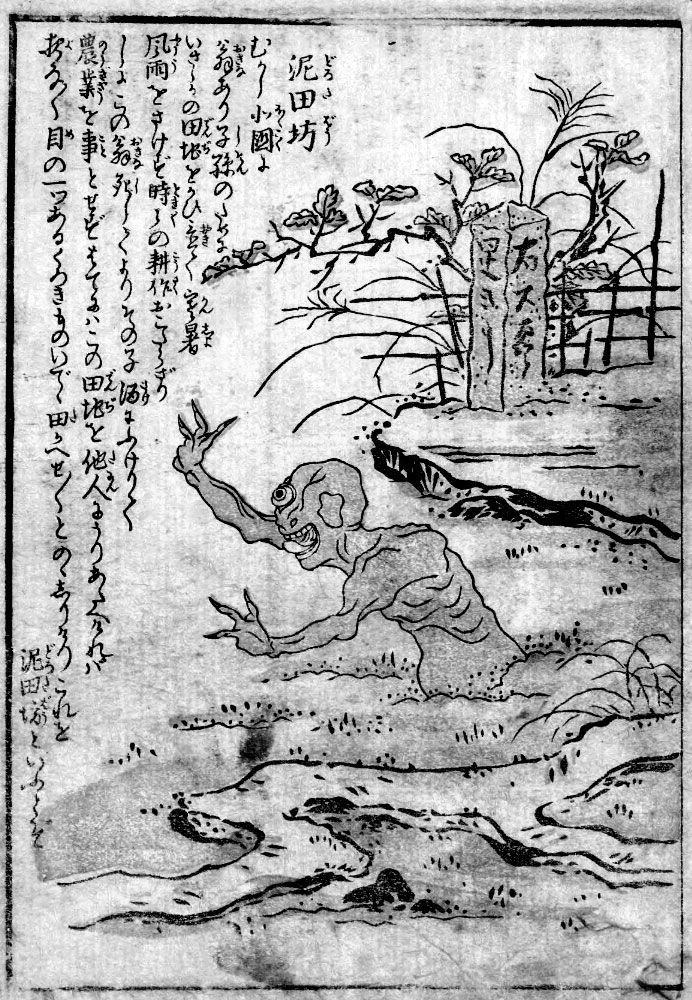 泥田坊
むかし北国に
翁あり子孫のために
いさゝかの田地をかひ置て寒暑
風雨をさけず時々の耕作おこたらざり
しにこの翁死してよりその子酒にふけりて
農業を事とせずはてにはこの田地を他人にうりあたへければ
夜な〳〵目の一つあるくろきものいでゝ田かへせ〳〵とのゝしりけりこれを
泥田坊といふとぞ